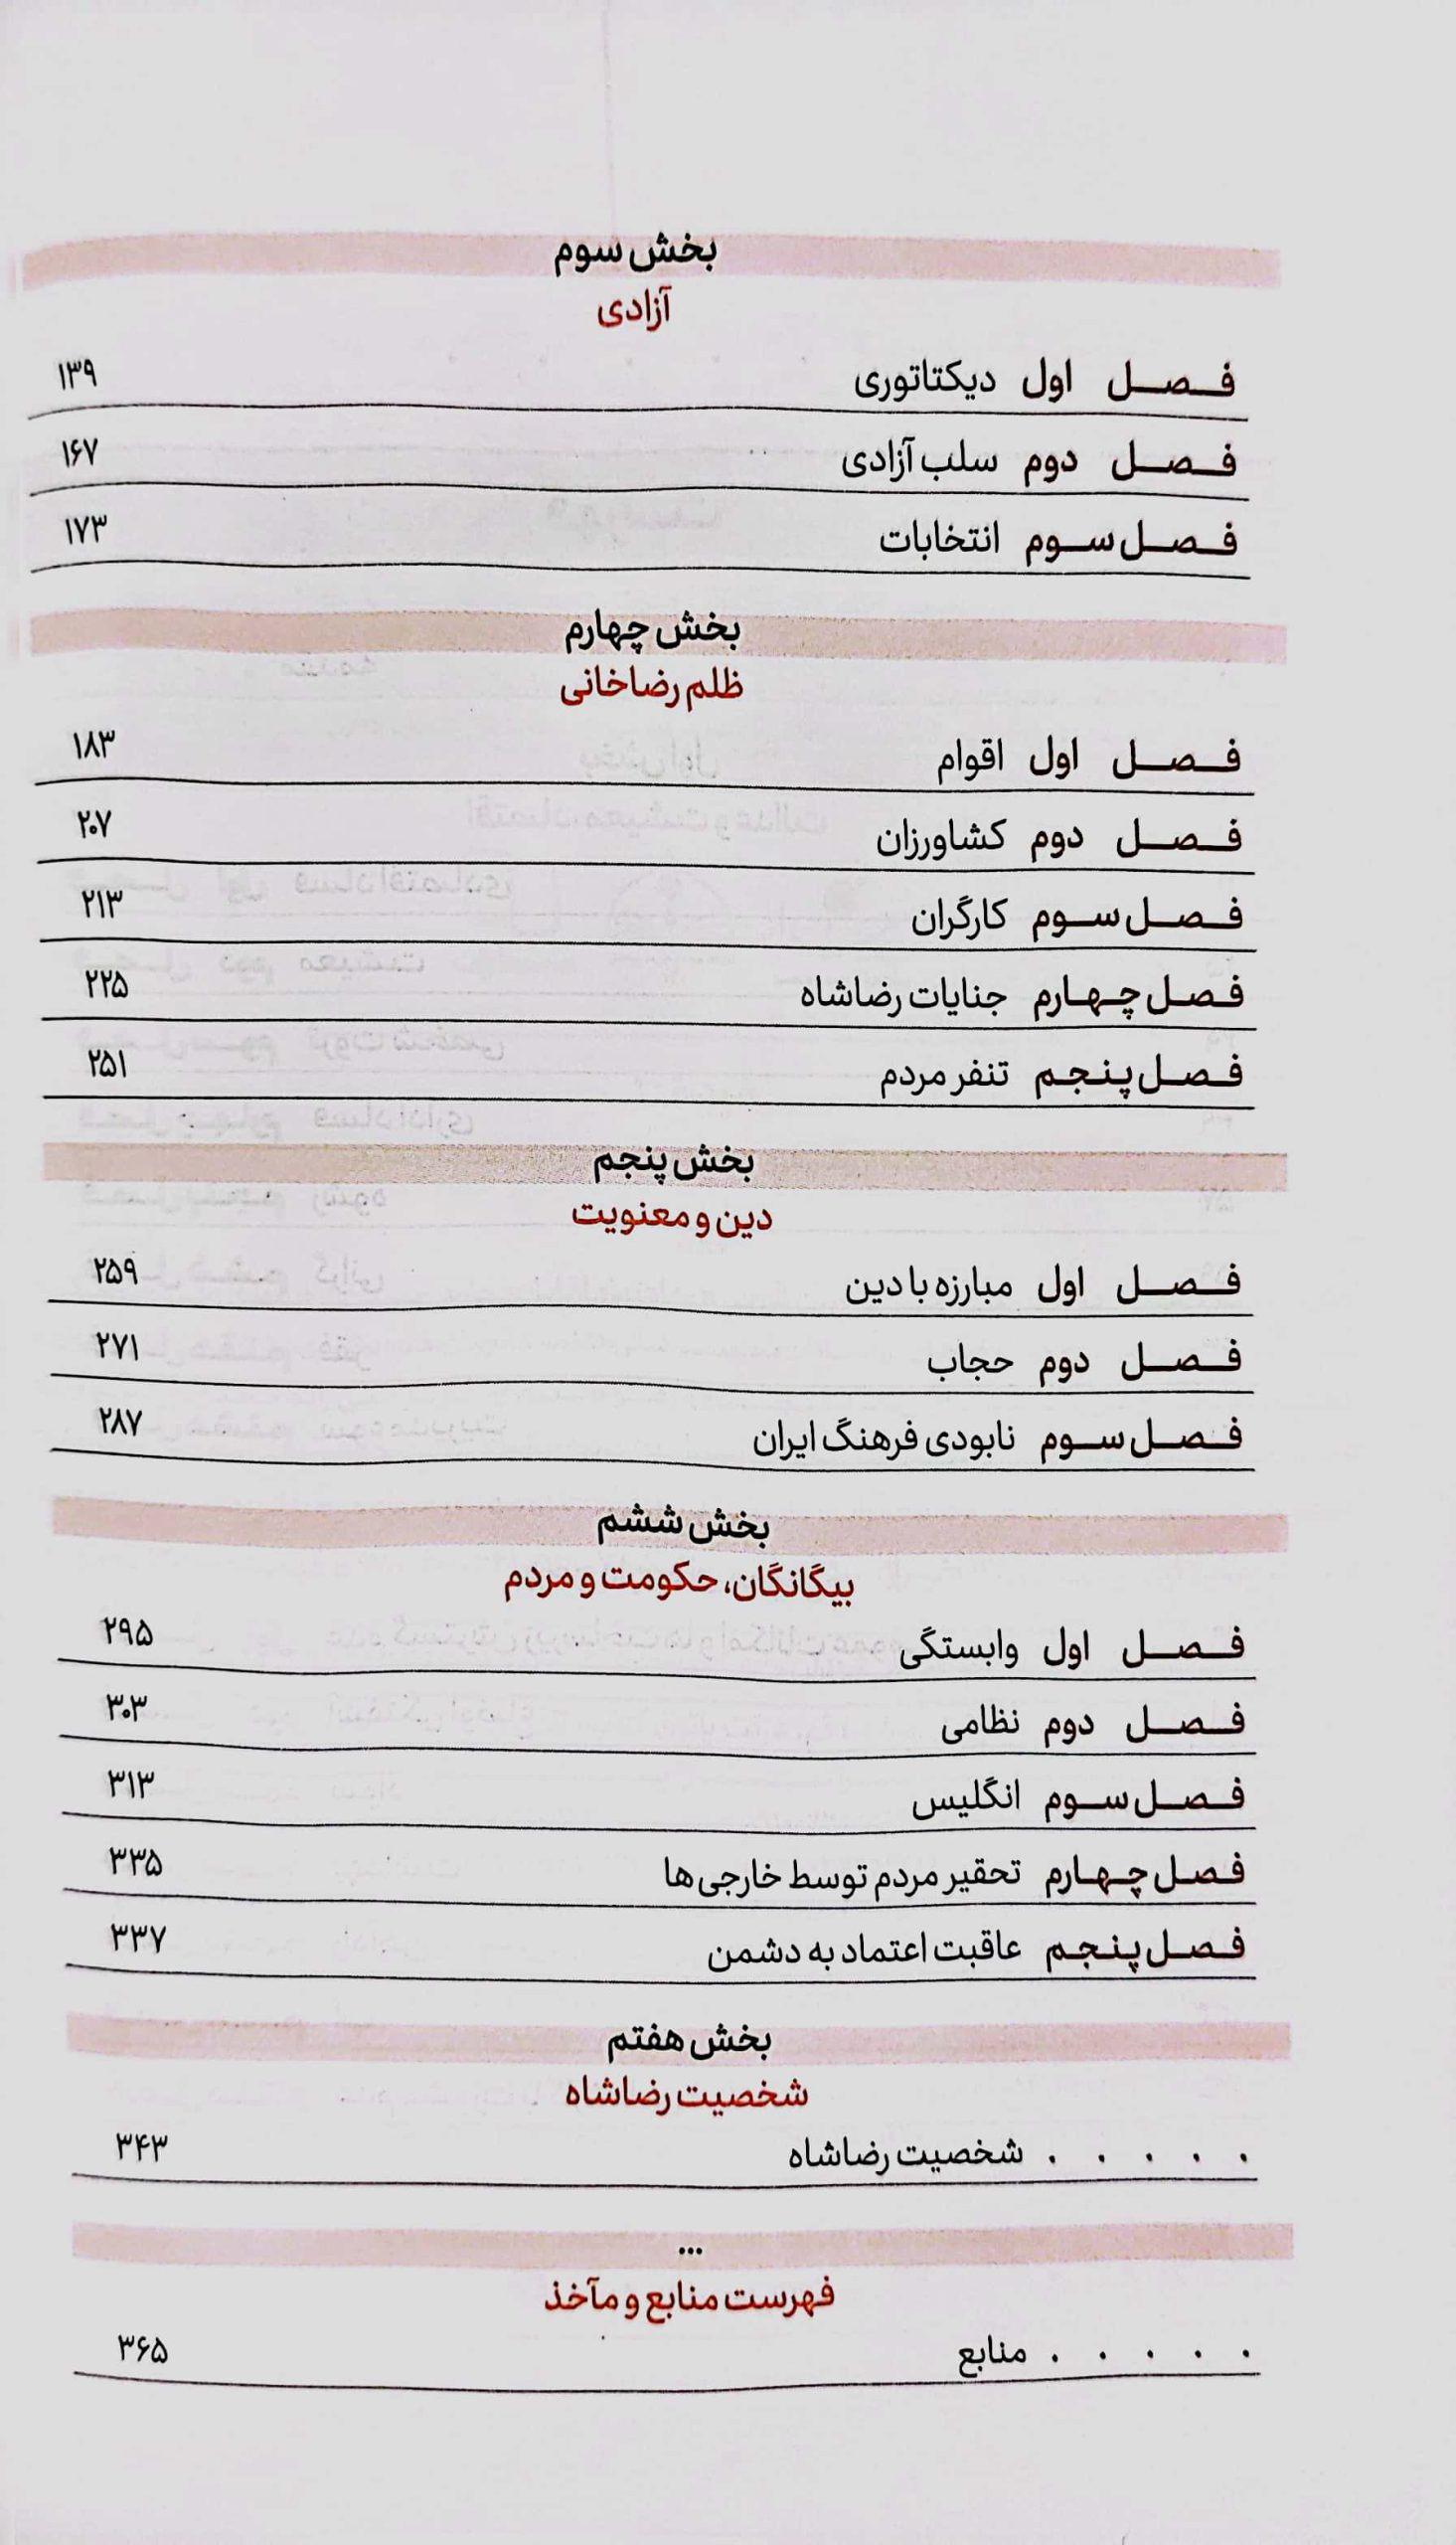 بخش سوم
آزادی
فصل اول دیکتاتوری ۱۳۹
فصل دوم سلب آزادی ۱۶۷
فصل سوم انتخابات ۱۷۳
بخش چهارم
ظلم رضاخانی
فصل اول اقوام ۱۸۳
فصل دوم کشاورزان ۲۰۷
فصل سوم کارگران ۲۱۳
فصل چهارم جنایات رضاشاه ۲۲۵
فصل پنجم تنفر مردم ۲۵۱
بخش پنجم
دین و معنویت
فصل اول مبارزه با دین ۲۵۹
فصل دوم حجاب ۲۷۱
فصل سوم نابودی فرهنگ ایران ۲۸۷
بخش ششم
بیگانگان، حکومت و مردم
فصل اول وابستگی ۲۹۵
فصل دوم نظامی ۳۰۳
فصل سوم انگلیس ۳۱۳
فصل چهارم تحقیر مردم توسط خارجی‌ها ۳۳۵
فصل پنجم عاقبت اعتماد به دشمن ۳۳۷
بخش هفتم
شخصیت رضاشاه
. . . . . شخصیت رضاشاه ۳۴۳
...
فهرست منابع و مآخذ
. . . . . منابع ۳۶۵